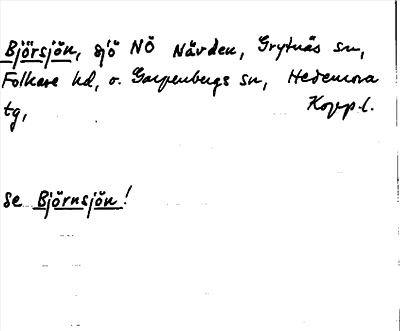 Björsjön, sjö NÖ Nävden, Grytnäs sn,
Folkare hd, o. Garpenbergs sn, Hedemora
tg, Kopp.l.
Se Björnsjön!